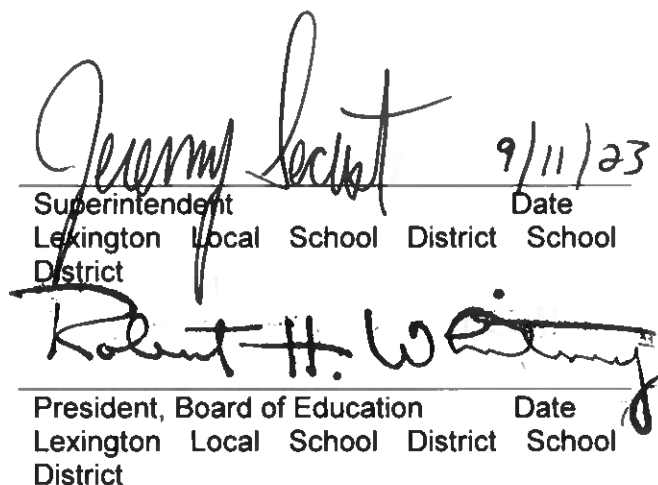 Jeremy Secrist 9/11/23
Superintendent Date
Lexington Local School District School
District
Robert H. W
President, Board of Education Date
Lexington Local School District School
District